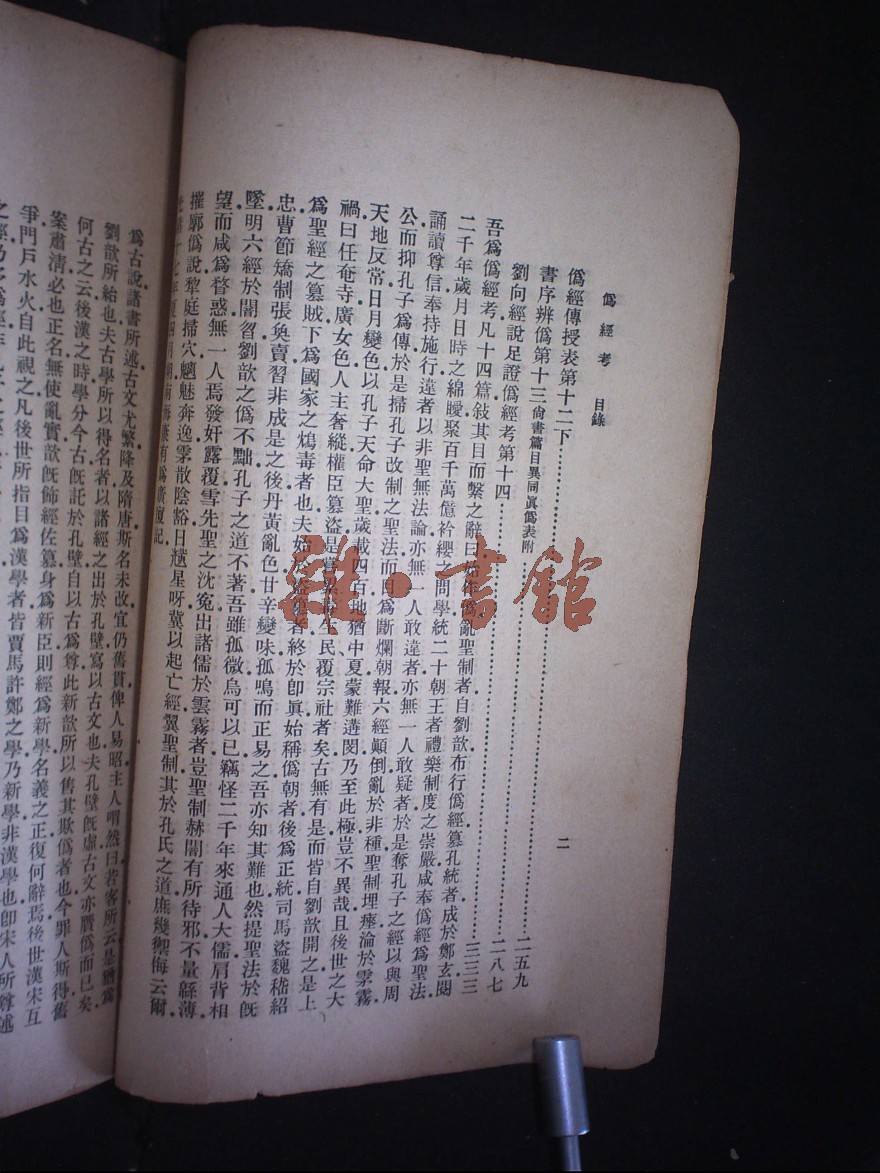 僞經考 目錄
二
僞經傳授表第十二下……二五九
書序辨僞第十三尙書篇目異同眞僞表附……二八七
劉向經說足證僞經考第十四……三三三
吾爲僞經考凡十四篇敍其目而繫之辭曰始作僞亂聖制者自劉歆布行僞經篡孔統者成於鄭玄閱
二千年歲月日時之綿曖聚百千萬億衿纓之問學統二十朝王者禮樂制度之崇嚴咸奉僞經爲聖法
誦讀尊信奉持施行違者以非聖無法論亦無一人敢違者亦無一人敢疑者於是奪孔子之經以與周
公而抑孔子爲傳於是掃孔子改制之聖法而目爲斷爛朝報六經顚倒亂於非種聖制埋瘞淪於雺霧
天地反常日月變色以孔子天命大聖歲載四百地猶中夏蒙難遘閔乃至此極豈不異哉且後世之大
禍曰任奄寺廣女色人主奢縱權臣篡盜是嘗累毒生民覆宗社者矣古無有是而皆自劉歆開之是上
爲聖經之篡賊下爲國家之鴆毒者也夫始於盜篡者終於卽眞始稱僞朝者後爲正統司馬盜魏嵇紹
忠曹節矯制張奐賣習非成是之後丹黃亂色甘辛變味孤鳴而正易之吾亦知其難也然提聖法於旣
墜明六經於闇曶劉歆之僞不黜孔子之道不著吾雖孤微烏可以已竊怪二千年來通人大儒肩背相
望而咸爲瞀惑無一人焉發奸露覆雪先聖之沈冤出諸儒於雲霧者豈聖制赫闇有所待邪不量緜薄
摧廓僞說犂庭掃穴魑魅奔逸雺散陰豁日爥星呀冀以起亡經翼聖制其於孔氏之道庶幾禦侮云爾
爲古說諸書所述古文尤繁降及隋唐斯名未改宜仍舊貫俾人易昭主人喟然曰若客所云是猶爲
劉歆所紿也夫古學所以得名者以諸經之出於孔壁寫以古文也夫孔壁旣虛古文亦贋僞而已矣
何古之云後漢之時學分今古旣託於孔壁自以古爲尊此新歆所以售其欺僞者也今罪人斯得舊
案肅淸必也正名無使亂實歆旣飾經佐篡身爲新臣則經爲新學名義之正復何辭焉後世漢宋互
爭門戶水火自此視之凡後世所指目爲漢學者皆賈馬許鄭之學乃新學非漢學也卽宋人所尊述